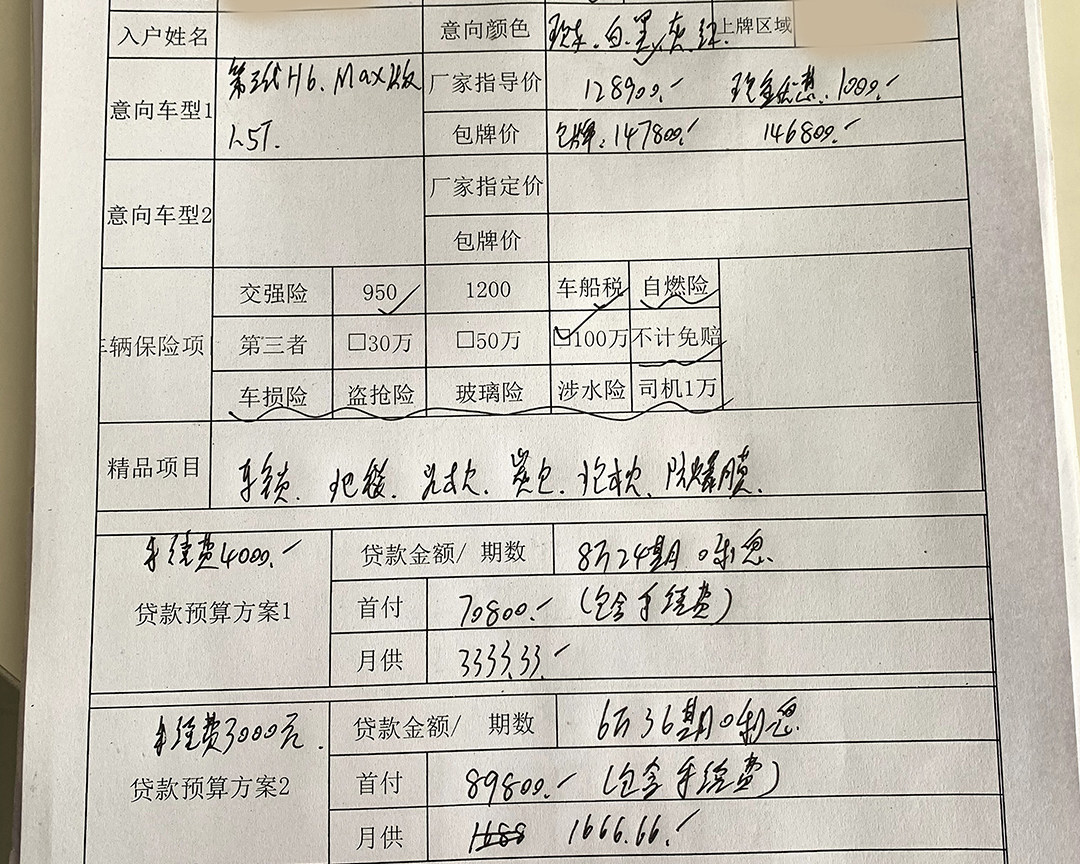 入户姓名 意向颜色 现车.白.黑.灰.红. 上牌区域
意向车型1 第三代H6. Max版 1.5T.
厂家指导价 128900.- 现金优惠. 1000.-
包牌价 包牌: 147800.- 146800.-
意向车型2 厂家指定价
包牌价
车辆保险项 交强险 950 1200 车船税 自燃险
第三者 □30万 □50万 □100万 不计免赔
车损险 盗抢险 玻璃险 涉水险 司机1万
精品项目 车锁. 地毯. 炭包. 抱枕. 防爆膜.
手续费4000.-
贷款预算方案1
贷款金额/ 期数 8万24期 0利息.
首付 70800.- (包含手续费)
月供 3333.33.-
手续费3000元.
贷款预算方案2
贷款金额/ 期数 6万36期0利息.
首付 89800.- (包含手续费)
月供 1666.66.-